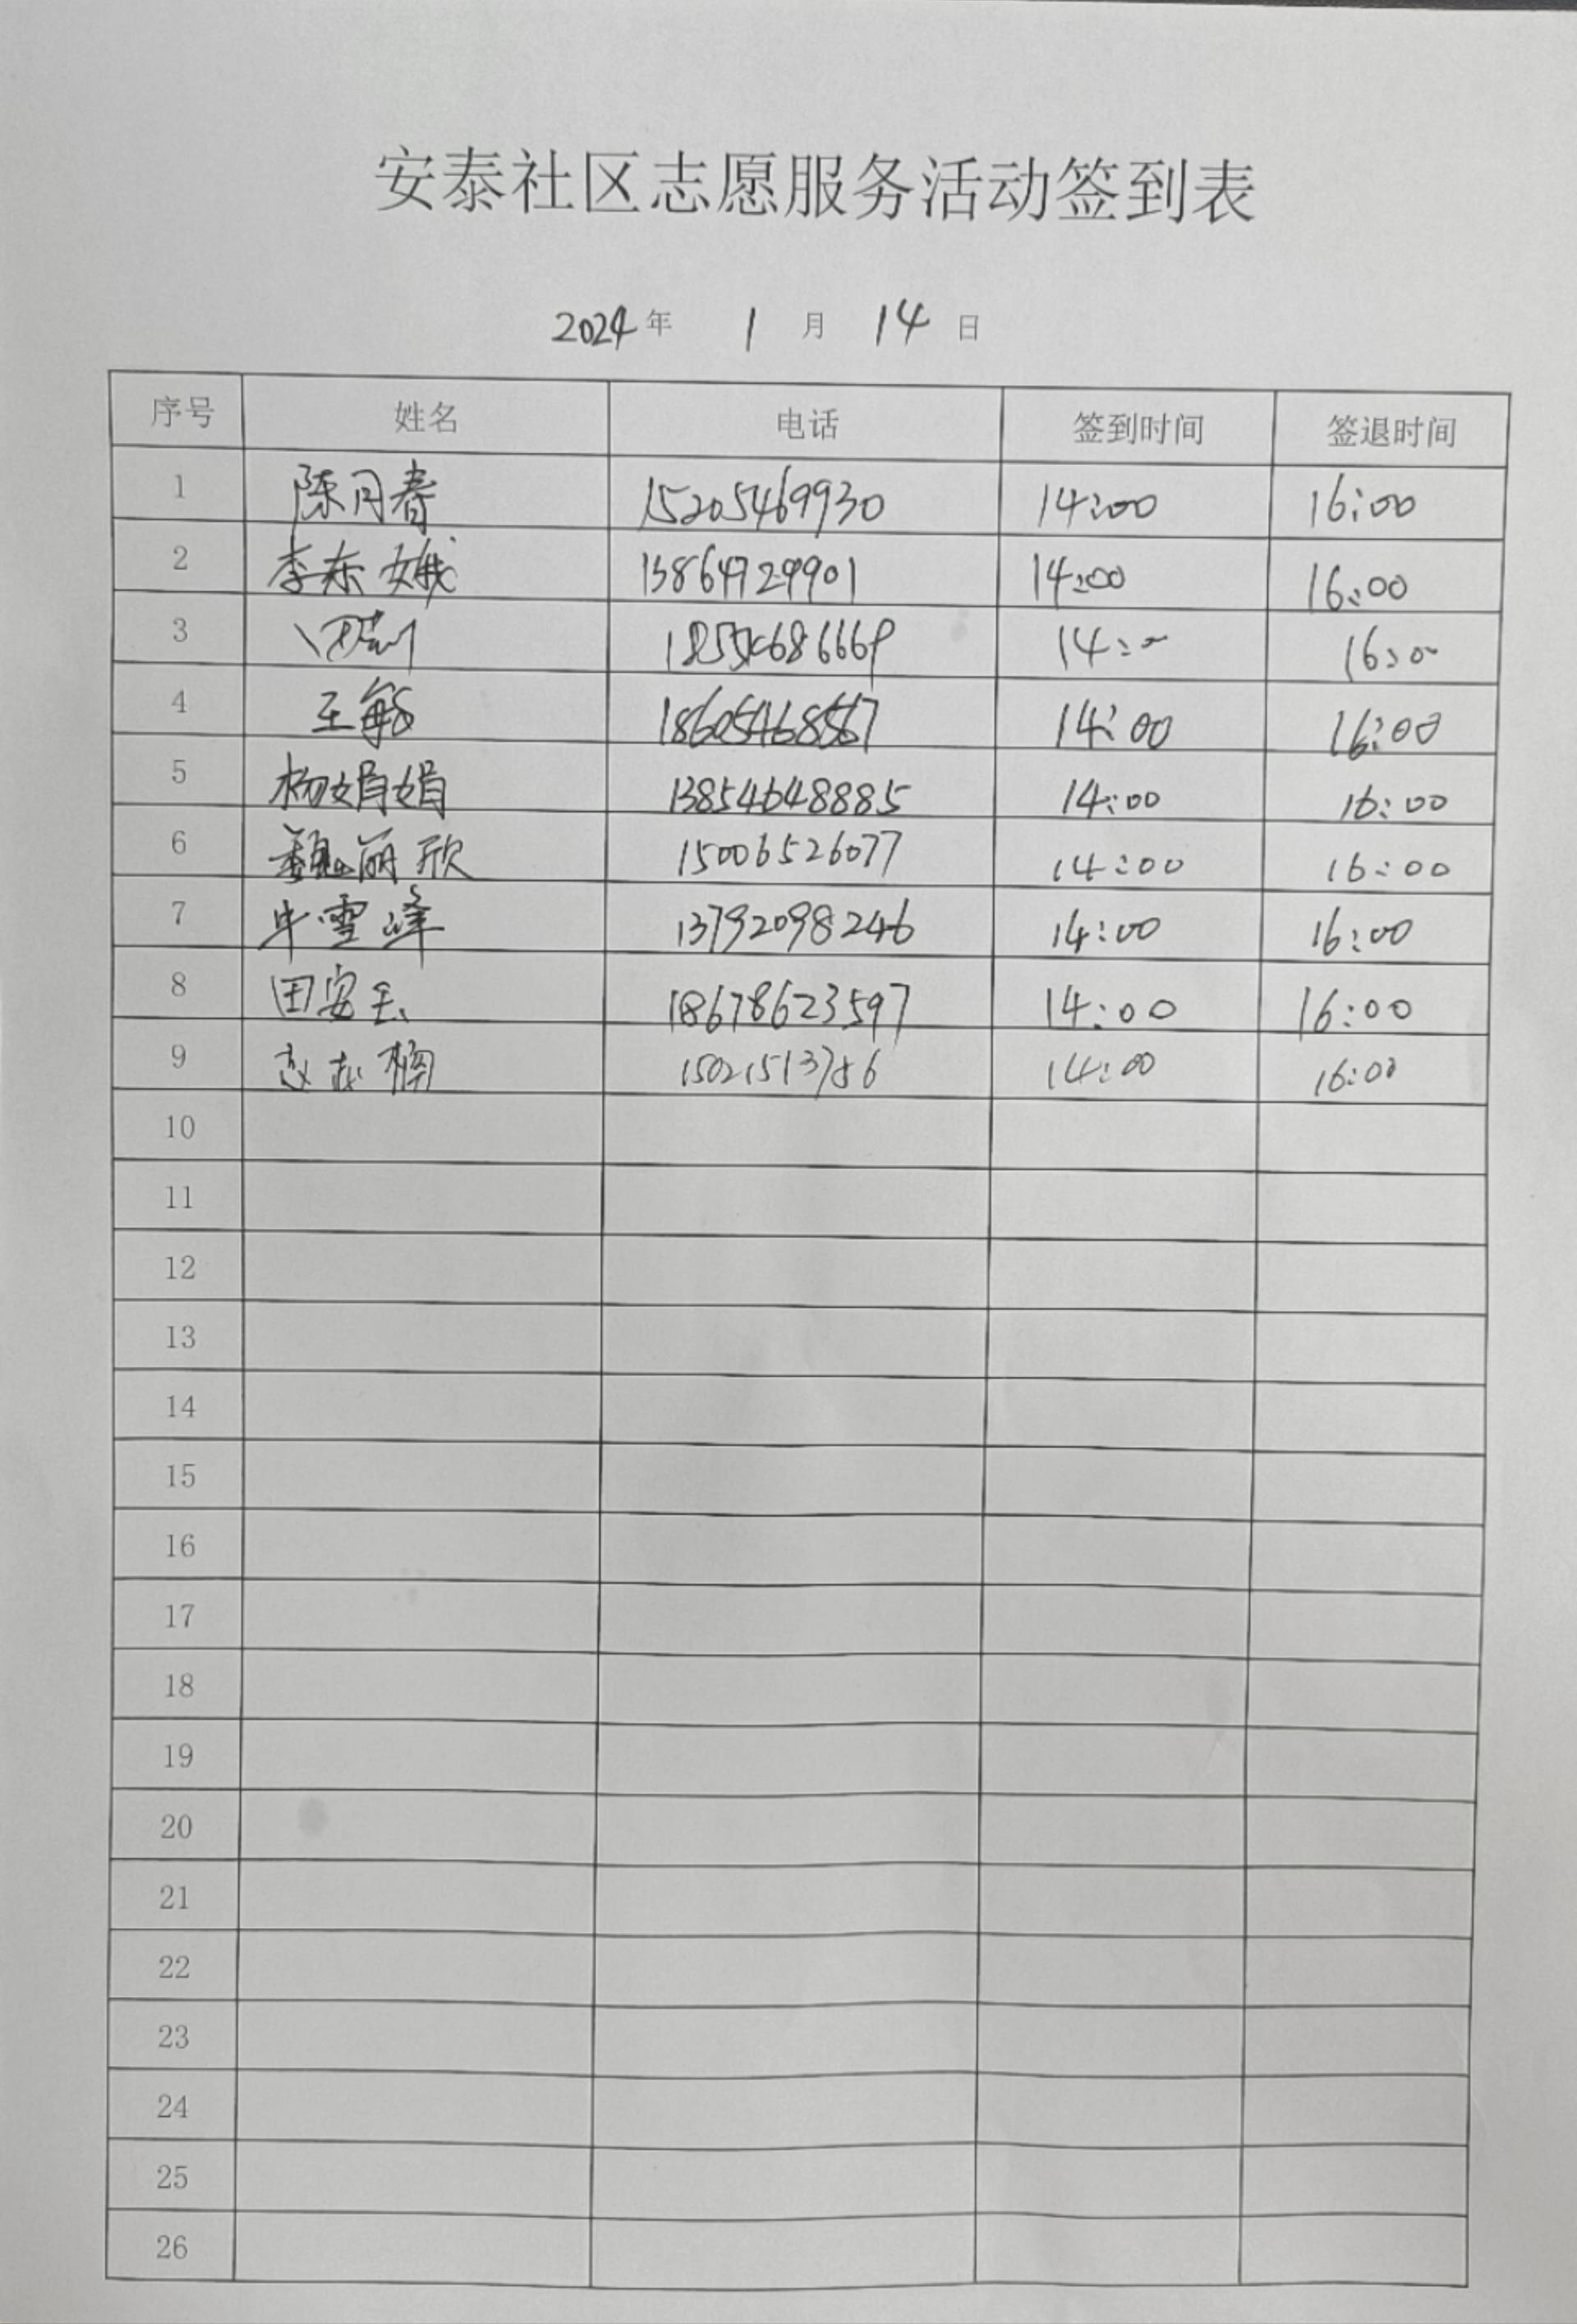 安泰社区志愿服务活动签到表
2024年 1 月 14 日
序号 姓名 电话 签到时间 签退时间
1 陈月春 15205469930 14:00 16:00
2 李东娥 13864729901 14:00 16:00
3 14:00 16:00
4 王敏 18605468567 14:00 16:00
5 杨娟娟 13854648885 14:00 16:00
6 魏丽欣 15006526077 14:00 16:00
7 牛雪峰 13792098246 14:00 16:00
8 田安玉 18678623597 14:00 16:00
9 赵楠 15021513786 14:00 16:00
10
11
12
13
14
15
16
17
18
19
20
21
22
23
24
25
26